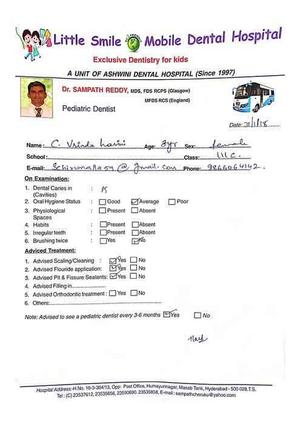 Little Smile Mobile Dental Hospital
Exclusive Dentistry for kids
A UNIT OF ASHWINI DENTAL HOSPITAL (Since 1997)
Dr. SAMPATH REDDY, MDS, FDS RCPS (Glasgow)
MFDS RCS (England)
Pediatric Dentist
Date:
Name: C. Age: 8yr Sex: female
School: Class: III C.
E-mail: @ Gmail.com Phone: 9866064142
On Examination:
1. Dental Caries in (Cavities) :
2. Oral Hygiene Status : Good Average Poor
3. Physiological Spaces : Present Absent
4. Habits : Present Absent
5. Irregular teeth : Present Absent
6. Brushing twice : Yes No
Adviced Treatment:
1. Advised Scaling/Cleaning : Yes No
2. Advised Flouride application: Yes No
3. Advised Pit & Fissure Sealants: Yes No
4. Advised Filling in
5. Advised Orthodontic treatment : Yes No
6. Others:
Note: Advised to see a pediatric dentist every 3-6 months Yes No
Hospital Address: H.No. 16-3-384/13, Opp. Post Office, Humayunagar, Masab Tank, Hyderabad - 500 028, T.S.
Tel: (C) 23537612, 23535656, 23530690, 23535858, E-mail: sampathcheruku@yahoo.com